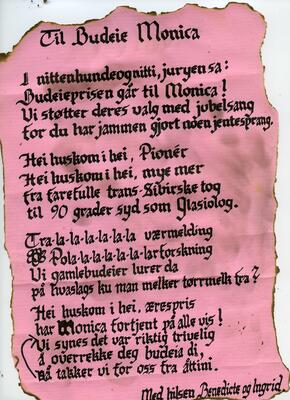 Til Budeie Monica
I nittenhundeognitti, juryen sa:
Budeieprisen går til Monica!
Vi støtter deres valg med jubelsang
for du har jammen gjort noen jentesprang.
Hei huskom i hei, Pionér
Hei huskom i hei, mye mer
fra farefulle trans-Sibirske tog
til 90 grader syd som Glasiolog.
Tra-la-la-la-la-la-la værmelding
Pola-la-la-la-la-larforskning
Vi gamlebudeier lurer da
på hvaslags ku man melker tørrmelk fra?
Hei huskom i hei, ærespris
har Monica fortjent på alle vis!
Vi synes det var riktig trivelig
å overrekke deg budeia di,
så takker vi for oss fra åttini.
Med hilsen Benedicte og Ingrid.